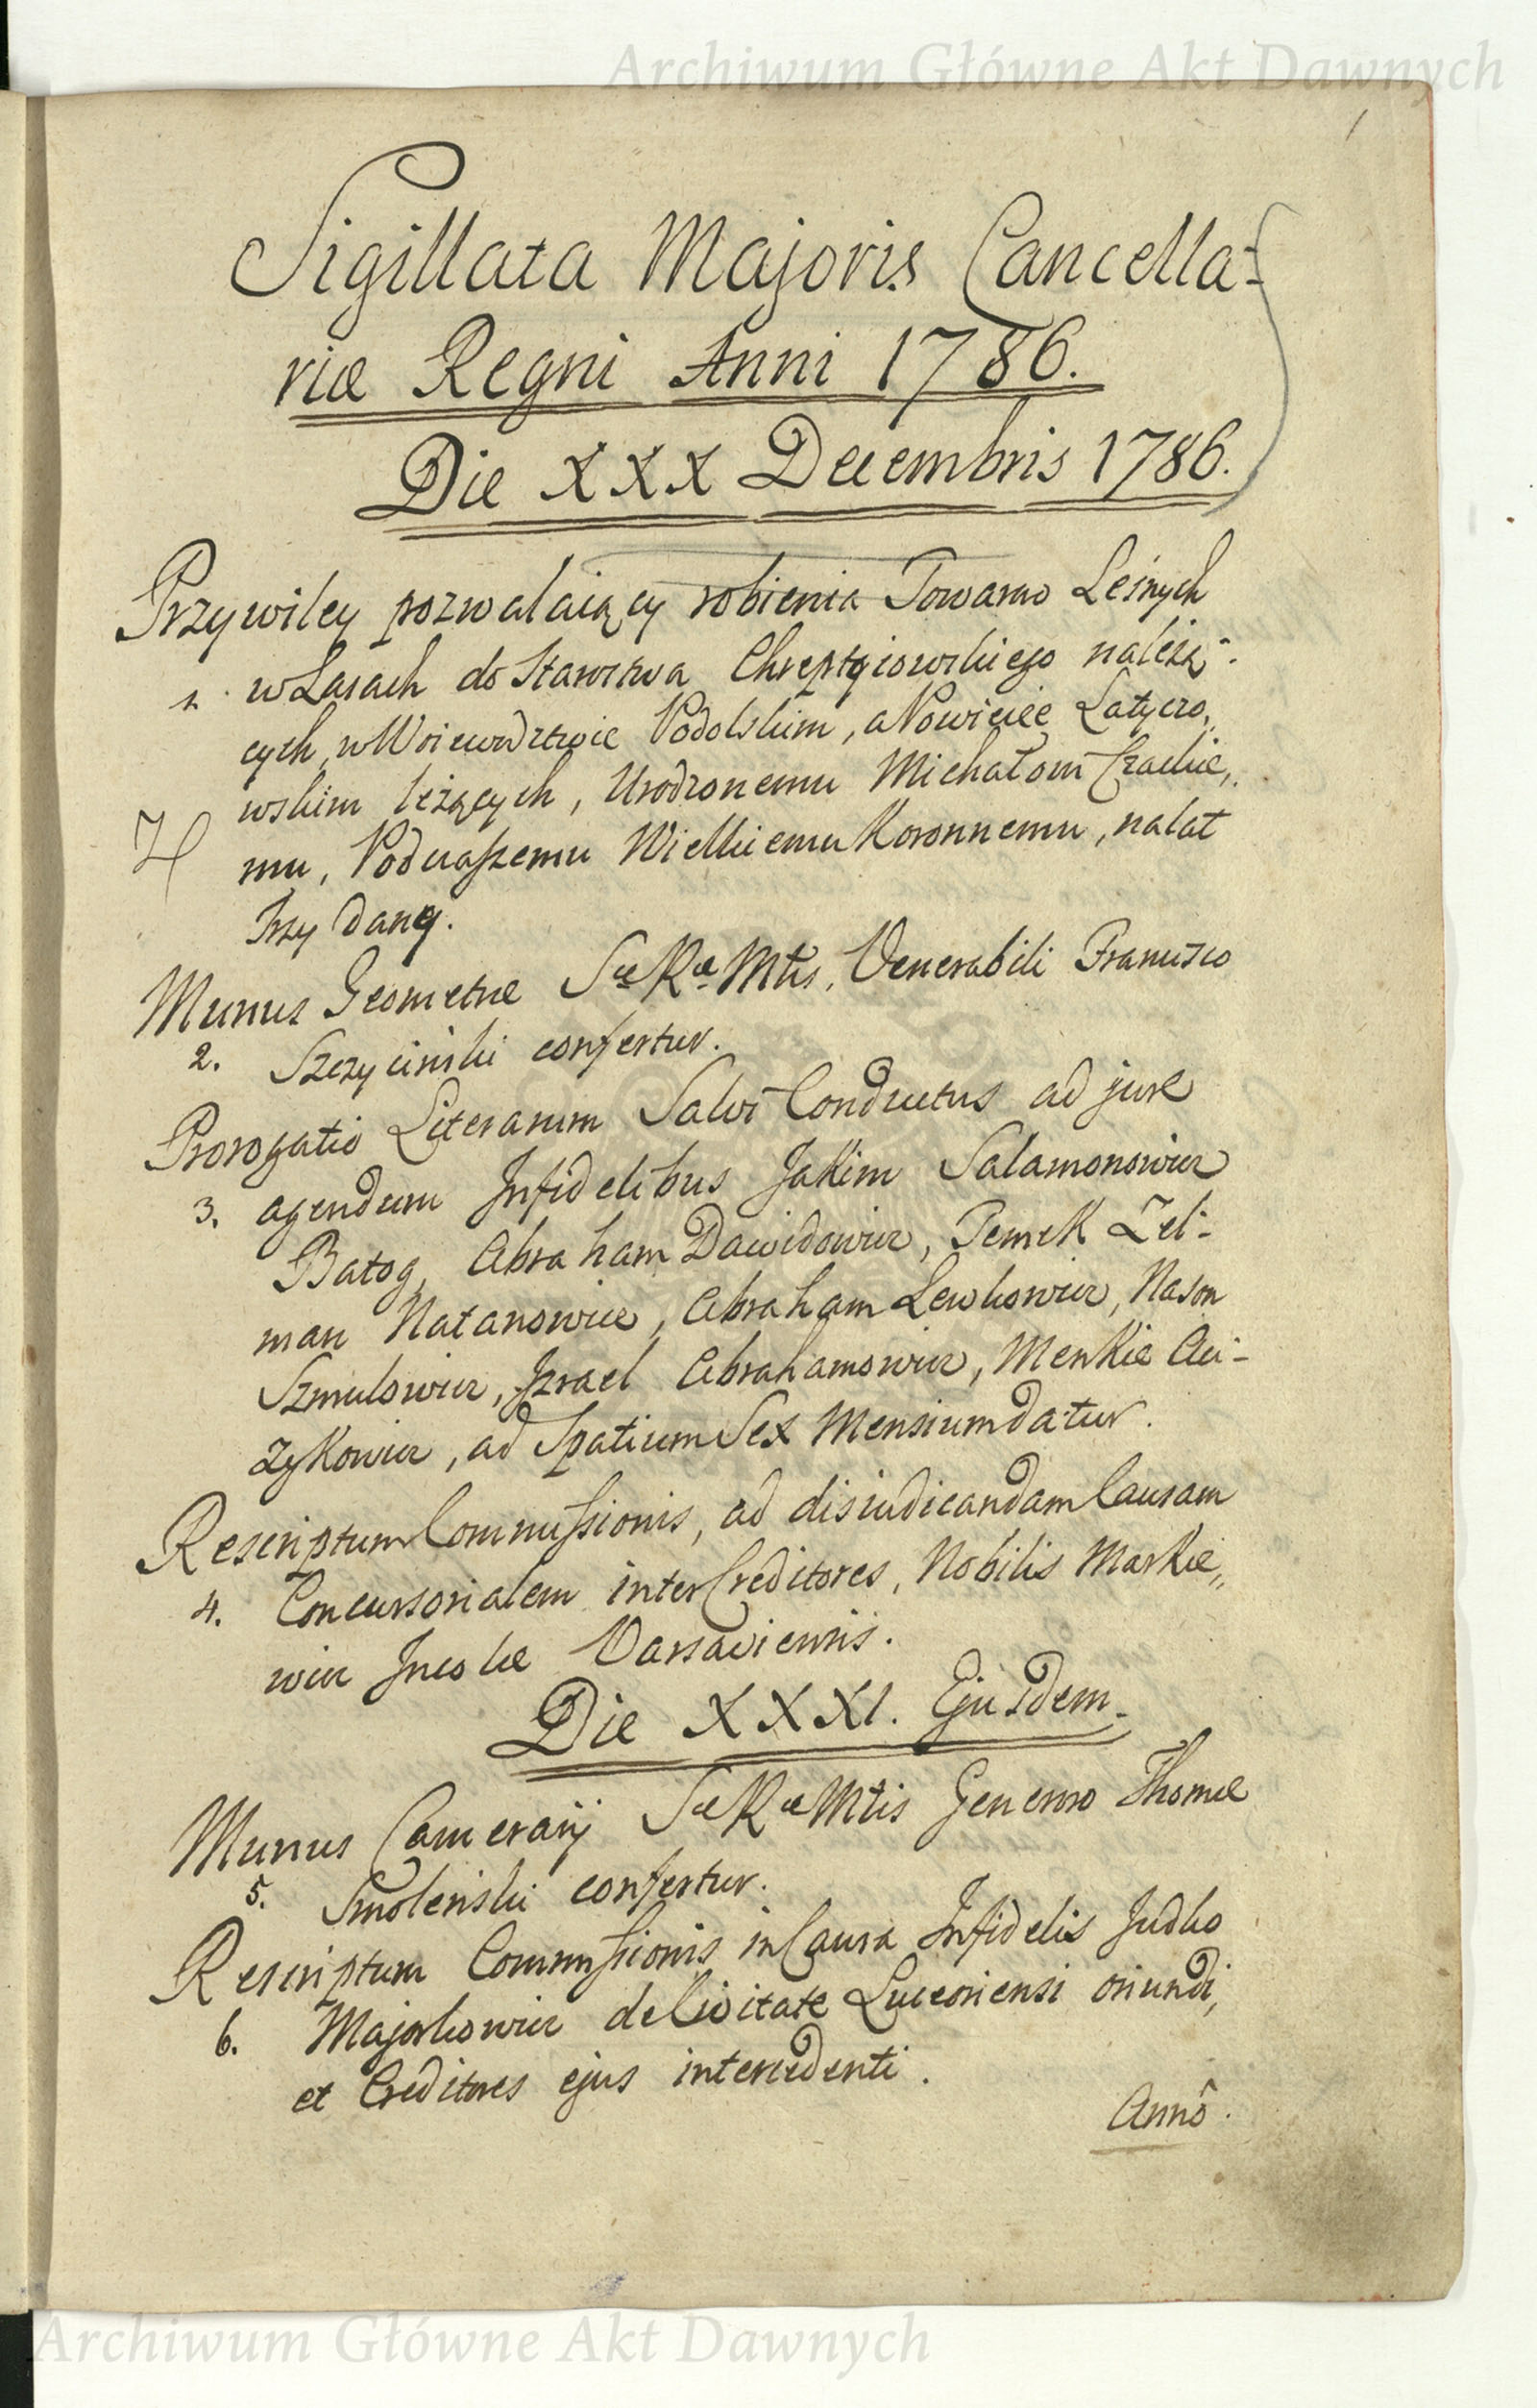 Archiwum Główne Akt Dawnych
1
Sigillata Majoris Cancella-
riæ Regni Anni 1786.
Die XXX Decembris 1786.
Przywiley pozwalaiący robienia Towarow Leśnych
1. w Lasach do Starostwa Chreptyiowskiego należą-
cych, w Woiewodztwie Podolskim, a Powiecie Latyczo,,
wskim leżących, Urodzonemu Michałowi Czackie,,
mu, Podczaszemu Wielkiemu Koronnemu, na lat
Trzy dany.
Munus Geometræ Sæ Ræ Mtis, Venerabili Francisco
2. Szczyciński confertur.
Prorogatio Literarum Salvi Conductus ad jure
3. agendum Infidelibus Jakim Salamonowicz
Batog, Abraham Dawidowicz, Temek Zel-
man Natanowicz, Abraham Lewkowicz, Nason
Szmulowicz, Izrael Abrahamowicz, Menkie Aii-
zykowicz, ad Spatium Sex Mensium datur.
Rescriptum Commissionis, ad disiudicandam Causam
4. Concursorialem inter Creditores, Nobilis Markie,,
wicz Incolæ Varsaviensis.
Die XXXI. Ejusdem.
Munus Camerarij Sæ Ræ Mtis Generoso Thomæ
5. Smoleński confertur.
Rescriptum Commissionis in Causa Infidelis Judko
6. Majorkowicz de Civitate Luceoriensi oriundi,
et Creditores ejus intercedenti.
Annô.
Archiwum Główne Akt Dawnych